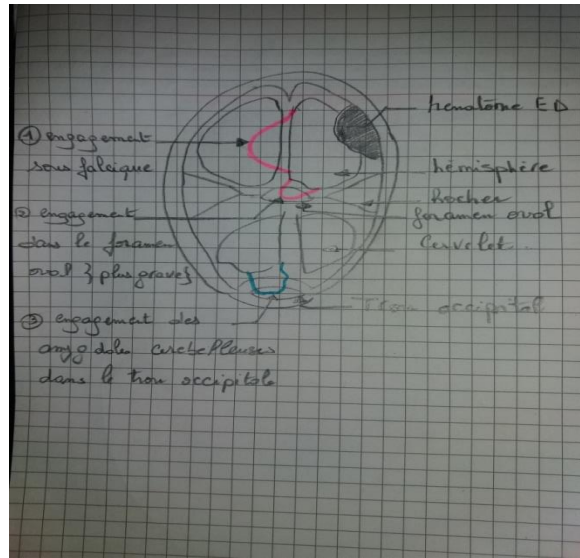 ① engagement
sous falcique
② engagement
dans le foramen
oval } plus grave}
③ engagement des
amygdales cerebelleuses
dans le trou occipitale
hematôme ED
hémisphère
Rocher
foramen oval
Cervelet
Trou occipital